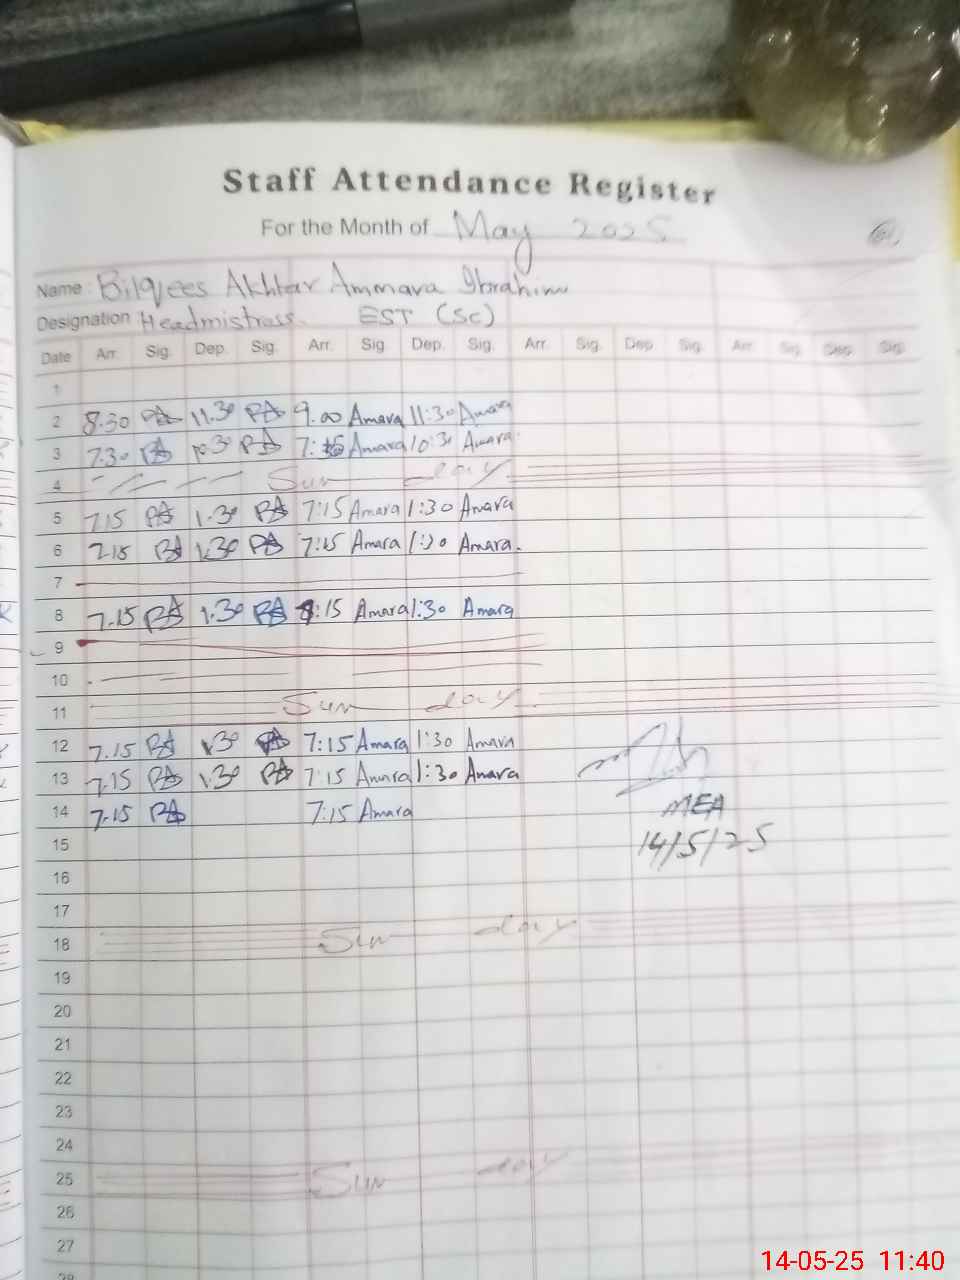 Staff Attendance Register
For the Month of May 2025
Name : Bilqees Akhtar Ammara Ibrahim
Designation Headmistress EST (SC)
Date Arr. Sig. Dep. Sig. Arr. Sig. Dep. Sig. Arr. Sig. Dep Sig. Arr. Sig. Dep. Sig.
1
2 8.30 BA 11.30 BA 9.00 Amara 11:30 Amara
3 7.30 BA 10.30 BA 7:15 Amara 10:30 Amara
4 Sun day
5 7.15 BA 1.30 BA 7:15 Amara 1:30 Amara
6 7.15 BA 1.30 BA 7:15 Amara 1:30 Amara.
7
8 7.15 BA 1.30 BA 7:15 Amara 1:30 Amara
9
10
11 Sun day
12 7.15 BA 1.30 BA 7:15 Amara 1:30 Amara
13 7.15 BA 1.30 BA 7:15 Amara 1:30 Amara
14 7.15 BA 7:15 Amara
MEA
15 14/5/25
16
17
18 Sun day
19
20
21
22
23
24
25 Sun day
26
27
28
14-05-25 11:40